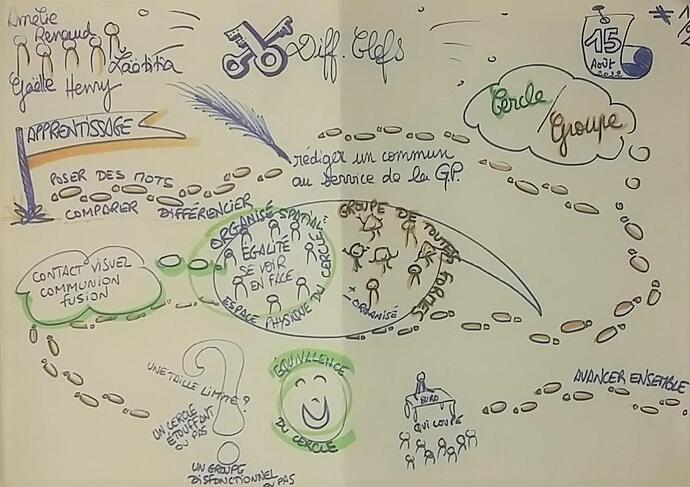 Amélie
Renaud
Laëtitia
Gaëlle Henry
Diff. Clefs
15
Août
* 1
Cercle
/Groupe
APPRENTISSAGE
rédiger un commun
au service de la G.P.
POSER DES MOTS
COMPARER DIFFÉRENCIER
ORGANISÉ SPATIAL?
ÉGALITÉ
SE VOIR
EN FACE
ESPACE PHYSIQUE DU CERCLE
GROUPE DE TOUTES FORMES
+
- ORGANISÉ
CONTACT VISUEL
COMMUNION
FUSION
UNE TAILLE LIMITE?
UN CERCLE
ÉTOUFFANT
OU PAS
UN GROUPE
DISFONCTIONNEL
OU PAS
ÉQUIVALENCE
DU CERCLE
BURO
QUI COUPE
AVANCER ENSEMBLE